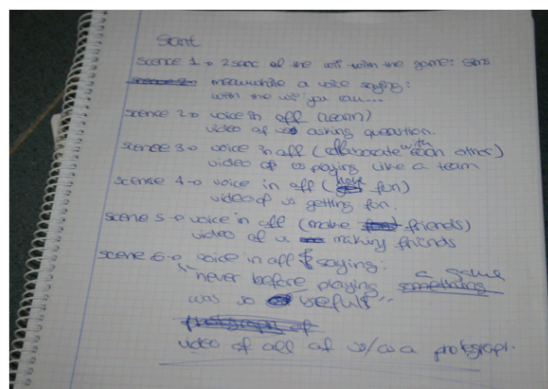 Start
scene 1 → 2 sec of the wii with the game: sims
meanwhile a voice saying:
with the wii you can...
scene 2 → voice in off (learn)
video of us asking question.
scene 3 → voice in off (collaborate with each other)
video of us playing like a team
scene 4 → voice in off (have fun)
video of us getting fun.
scene 5 → voice in off (make friends)
video of us making friends
scene 6 → voice in off saying:
"never before playing a game
was so usefull"..
video of all of us/as a photograph.